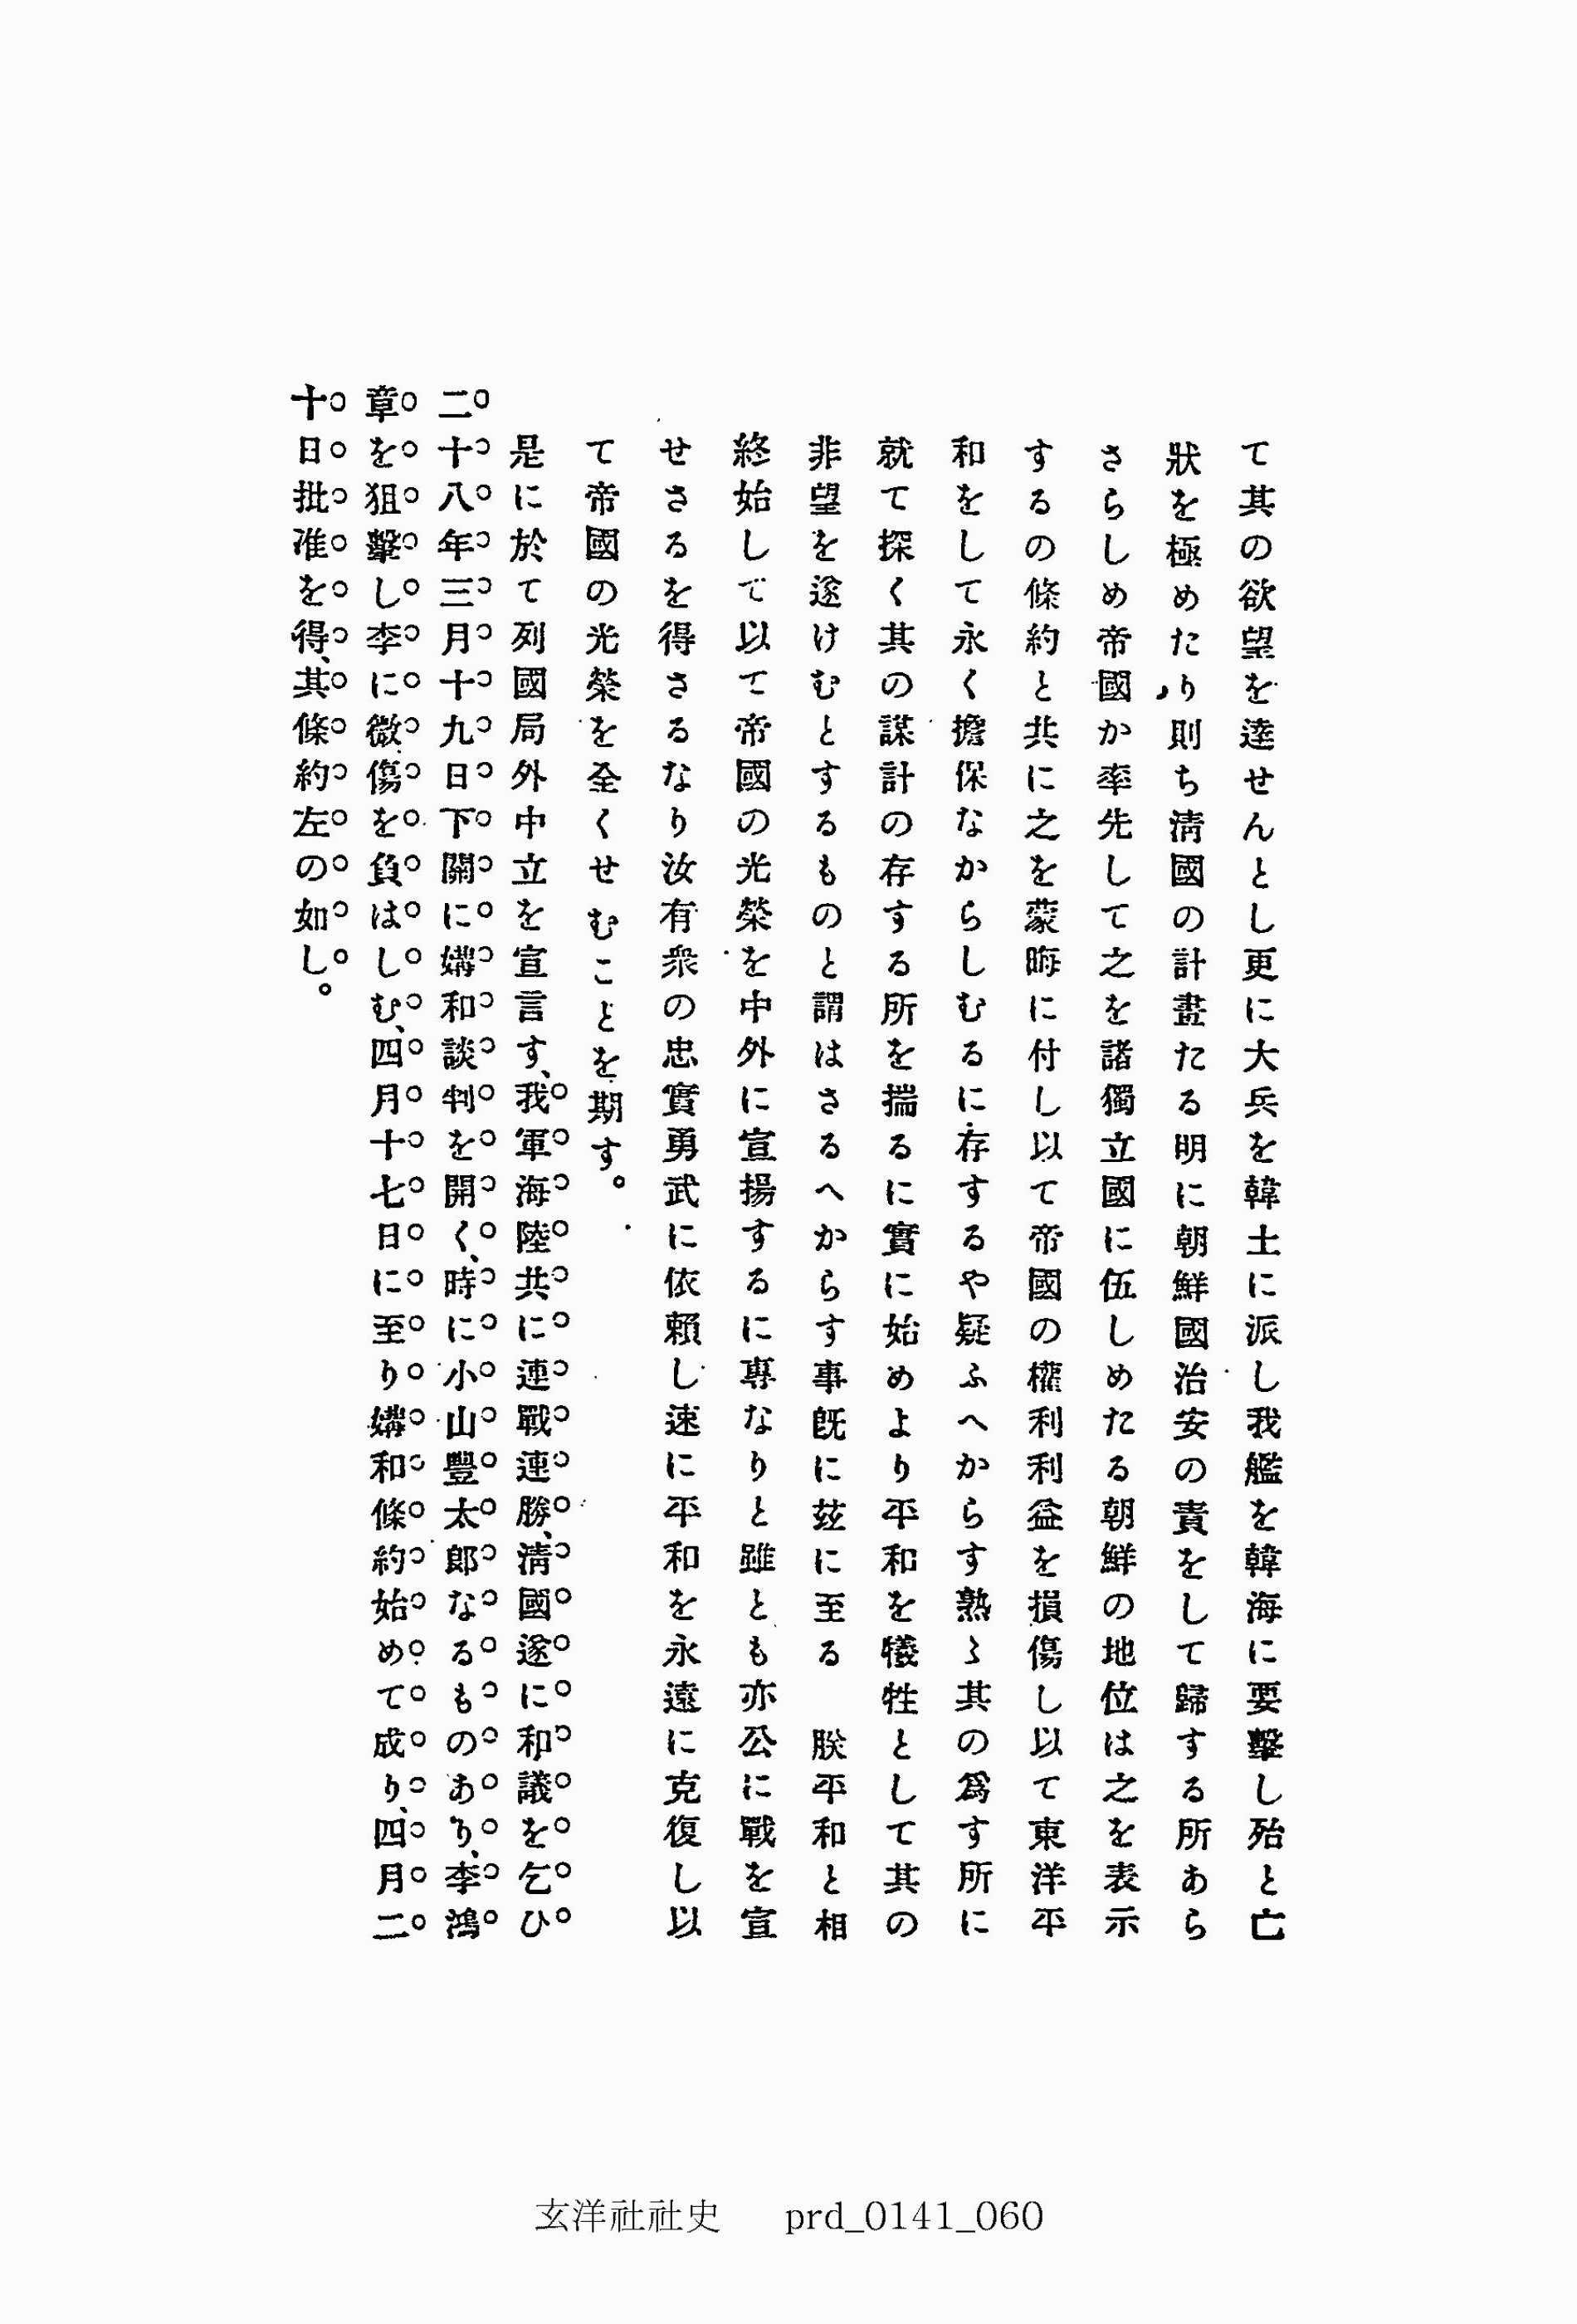 て其の欲望を達せんとし更に大兵を韓土に派し我艦を韓海に要擊し殆と亡
狀を極めたり則ち淸國の計畫たる明に朝鮮國治安の責をして歸する所あら
さらしめ帝國か率先して之を諸獨立國に伍しめたる朝鮮の地位は之を表示
するの條約と共に之を蒙晦に付し以て帝國の權利利益を損傷し以て東洋平
和をして永く擔保なからしむるに存するや疑ふへからす熟〻其の爲す所に
就て深く其の謀計の存する所を揣るに實に始めより平和を犧牲として其の
非望を遂けむとするものと謂はさるへからす事既に玆に至る　朕平和と相
終始して以て帝國の光榮を中外に宣揚するに專なりと雖とも亦公に戰を宣
せさるを得さるなり汝有衆の忠實勇武に依賴し速に平和を永遠に克復し以
て帝國の光榮を全くせむことを期す。
是に於て列國局外中立を宣言す、我軍海陸共に連戰連勝、淸國遂に和議を乞ひ
二十八年三月十九日下關に媾和談判を開く、時に小山豐太郎なるものあり、李鴻
章を狙擊し李に微傷を負はしむ、四月十七日に至り媾和條約始めて成り、四月二
十日批准を得、其條約左の如し。
玄洋社社史　prd_0141_060